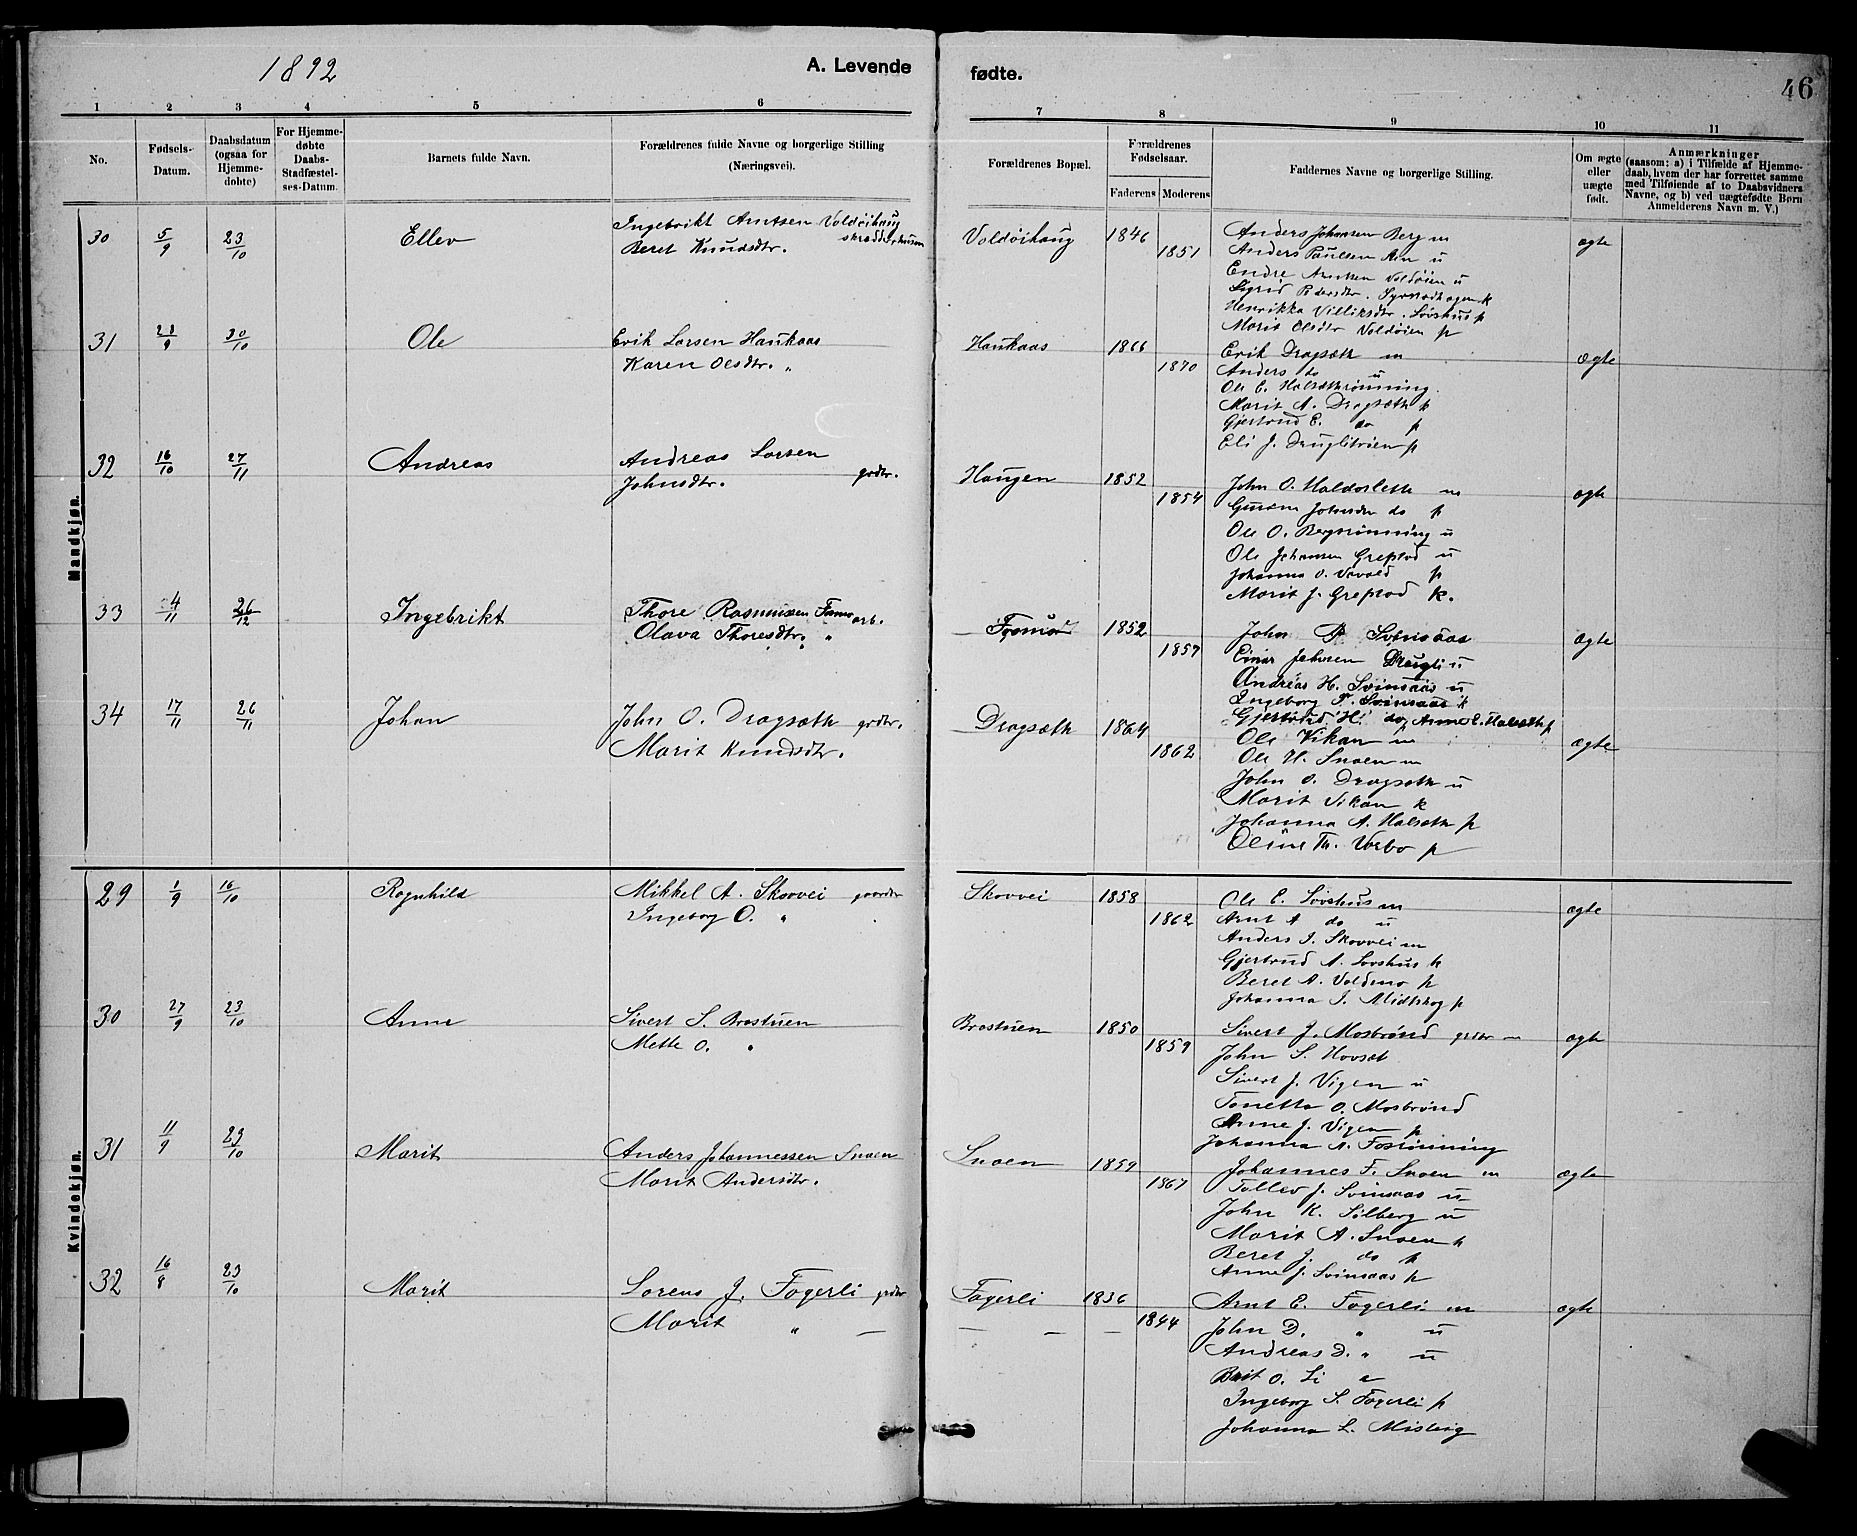 1892
A. Levende fødte.
46
1 2 3 4 5 6 7 8 9 10 11
No.
Fødsels-Datum.
Daabsdatum (ogsaa for Hjemme-døbte)
For Hjemme-døbte Daabs-Stadfæstel-ses-Datum.
Barnets fulde Navn.
Forældrenes fulde Navne og borgerlige Stilling
(Næringsvei).
Forældrenes Bopæl.
Forældrenes Fødselsaar.
Faderens Moderens
Faddernes Navne og borgerlige Stilling.
Om ægte eller uægte født.
Anmærkninger
(saasom: a) i Tilfælde af Hjemme-
daab, hvem der har forrettet samme
med Tilføiende af to Daabsvidners
Navne, og b) ved uægtefødte Børn
Anmelderens Navn m. V.)
Mandkjøn.
30 5/9 23/10 Ellev
Ingebrikt Arntsen Voldøihaug
Beret Knudsdtr.
Voldøihaug 1846 1851
Anders Johnsen Berg m
Anders Paulsen Aan u
Endre Arntsen Voldøien u
Sigrid Pedersdtr. k
Henrikka Villiksdtr. Løvshus p
Marit Olsdtr Voldøien p
ægte
31 28/9 30/10 Ole
Erik Larsen Haukaas
Karen Olsdtr. "
Haukaas 1866 1870
Erik Dragsæth m
Anders do u
Ole E. Halsethrønning
Marit A. Dragsæth k
Gjertrud E. do p
Eli J. Druglitrøen p
ægte
32 16/10 27/11 Andreas
Andreas Larsen
Johnsdtr. grdbr.
Haugen 1852 1854
John O. Haldosleth m
Johnsdtr do p
Ole O. Bergrønning u
Ole Johansen Grefstad u
Johanna O. Vavold p
Marit J. Grefstad k.
ægte
33 4/11 26/12 Ingebrikt
Thore Rasmussen Fosmo arb.
Olava Thoresdtr. "
Fosmo 1852 1857
John R Svinsaas
Einar Johnsen Drugli u
Andreas H. Svinsaas u
Ingeborg P. Svinsaas k
Gjertrud H. do, Anne E. Halseth p
ægte
34 17/11 26/11 Johan
John O. Dragsæth grdbr.
Marit Knudsdtr.
Dragsæth 1864 1862
Ole Vikan m
Ole H. Snoen m
John O. Dragseth u
Marit Vikan k
Johanna A. Halseth p
Oline Th. Vorbo p
ægte
Kvindekjøn.
29 1/9 16/10 Ragnhild
Mikkel A. Skovvei gaardbr
Ingeborg O. "
Skovvei 1858 1862
Ole E. Løvshus m
Arnt A do u
Anders J. Skovvei m
Gjertrud A. Løvshus k
Beret A. Voldmo p
Johanna J. Midtskog p
ægte
30 27/9 23/10 Anne
Sivert S. Brostuen
Mette O. "
Brostuen 1850 1859
Sivert J. Mosbrønd grdbr m
John S. Hovset
Sivert J. Vigen u
Tonetta O. Mosbrønd
Anne J. Vigen p
Johanna A. Fosrønning
ægte
31 11/9 23/10 Marit
Anders Johannessen Snoen
Marit Andersdtr.
Snoen 1859 1867
Johannes F. Snoen m
Tollev J. Svinsaas u
John K. Silberg u
Marit A. Snoen k
Beret J. do p
Anne J. Svinsaas p
ægte
32 16/8 23/10 Marit
Lorens J. Fagerli grdbr
Marit " —
Fagerli 1836 1844
— — —
Arnt E. Fagerli m
John D. " u
Andreas D. " u
Brit O. Li
Ingeborg L. Fagerli p
Johanna L. Misberg
ægte